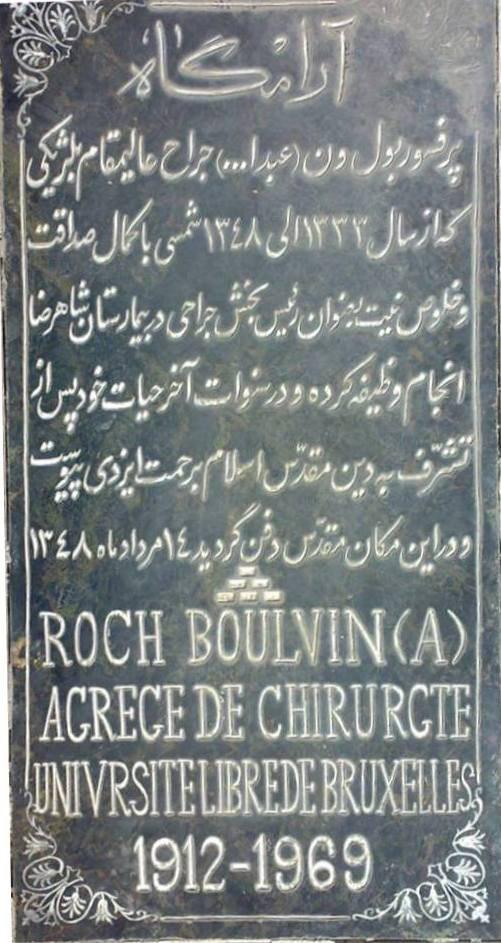 آرامگاه
پرفسور بول ون (عبدا...) جراح عالیمقام بلژیکی
که از سال ۱۳۳۳ الی ۱۳۴۸ شمسی با کمال صداقت
و خلوص نیت بعنوان رئیس بخش جراحی در بیمارستان شاهرضا
انجام وظیفه کرده و در سنوات آخر حیات خود پس از
تشرّف به دین مقدّس اسلام برحمت ایزدی پیوست
و در این مکان مقدّس دفن گردید ۱۴ مرداد ماه ۱۳۴۸
ROCH BOULVIN (A)
AGREGE DE CHIRURGTE
UNIVRSITE LIBRE DE BRUXELLES
1912-1969